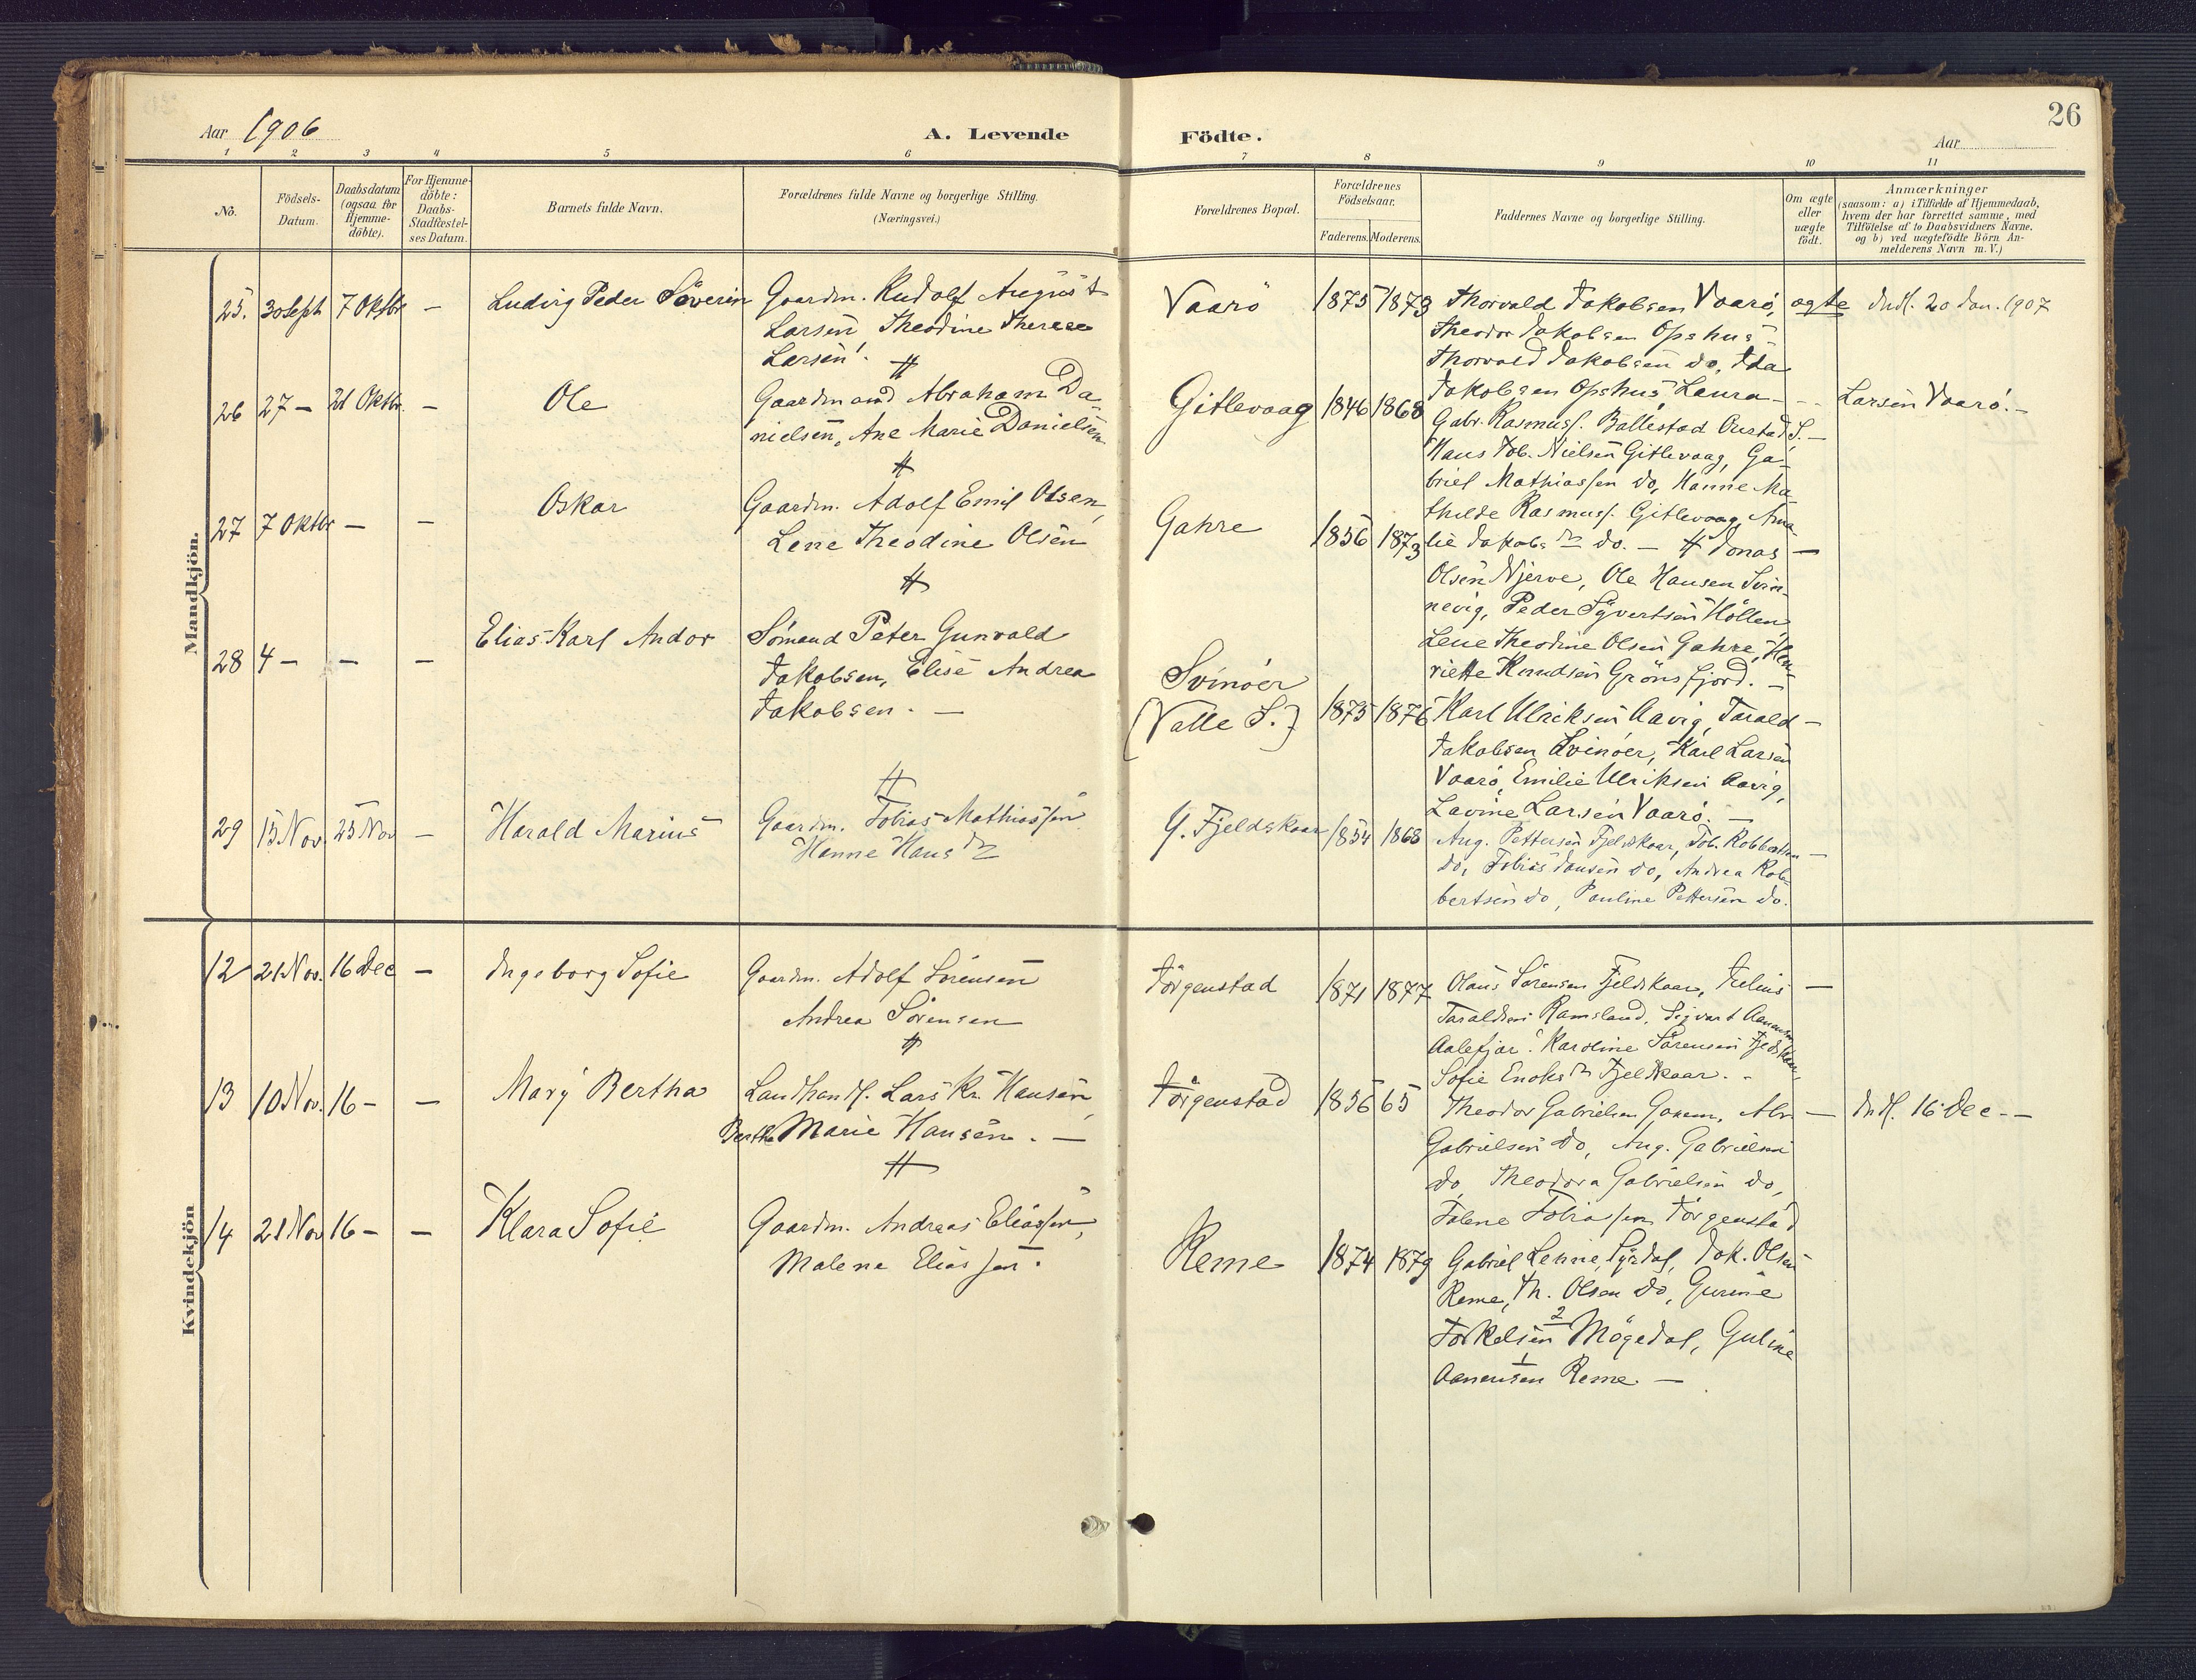 26
Aar 1906
A. Levende Födte.
Aar
1 2 3 4 5 6 7 8 9 10 11
No.
Födsels-
Datum.
Daabsdatum
(ogsaa for
Hjemme-
döbte).
For Hjemme-
döbte:
Daabs-
Stadfæstel-
ses Datum.
Barnets fulde Navn.
Forældrenes fulde Navne og borgerlige Stilling.
(Næringsvei.)
Forældrenes Bopæl.
Forældrenes
Födselsaar.
Faderens. Moderens.
Faddernes Navne og borgerlige Stilling.
Om ægte
eller
uægte
födt.
Anmærkninger
(saasom: a) i Tilfælde af Hjemmedaab,
hvem der har forrettet samme, med
Tilföielse af to Daabsvidners Navne,
og b) ved uægtefödte Börn An-
melderens Navn m. V.)
Mandkjön.
25. 30 Sept 7 Oktbr — Ludvig Peder Söverin
Gaardm. Rudolf August
Larsen, Theodine Therese
Larsen.
Vaarö 1875 1873
Thorvald Jakobsen Vaarö,
Theodor Jakobsen Opshus
Thorvald Jakobsen do, Ida
Jakobsen Opshus, Laura
ægte
Indf. 20 Jan. 1907
Larsen Vaarö. —
26 27 — 21 Oktbr. — Ole
Gaardmand Abraham Da-
nielsen, Ane Marie Danielsen
Gitlevaag 1846 1868
Gabr. Rasmuss. Ballestad S. —
Hans Tob. Nielsen Gitlevaag, Ga-
briel Mathiassen do, Hanne Ma-
thilde Rasmuss. Gitlevaag, Ama-
lie Jakobs do. —
27 7 Oktbr — — Oskar
Gaardm. Adolf Emil Olsen,
Lene Theodine Olsen
Gahre 1856 1873
Jonas —
Olsen Njerve, Ole Hansen Svin-
nevig, Peder Syvertsen Höllen
Lene Theodine Olsen Gahre, Hen-
riette Knudsen Grönsfjord. —
28 4 — — — Elias Karl Andor
Sömand Peter Gunvald
Jakobsen, Elise Andrea
Jakobsen. —
Svinöer
(Valle S.) 1875 1876
Karl Ulriksen Aavig, Tarald —
Jakobsen Svinöer, Karl Larsen
Vaarö, Emilie Ulriksen Aavig,
Lavine Larsen Vaarö. —
29 15 Nov. 25 Nov — Harald Marius
Gaardm. Tobias Mathiassen
Hanne Hans
Y. Fjeldskaar 1854 1868
Aug. Pettersen Fjeldskaar, Tob. Robbertsen —
do, Tobias Jansen do, Andrea Rob-
bertsen do, Pauline Pettersen do.
Kvindekjön
12 21 Nov. 16 Dec — Ingeborg Sofie
Gaardm. Adolf Sörensen
Andrea Sörensen
Jörgenstad 1871 1877
Olaus Sörensen Fjeldskaar, Julius —
Taraldsen Ramsland, Sigvart Aanensen
Aalefjær. Karoline Sörensen Fjeldskaar,
Sofie Enoks Fjeldskaar. -
13 10 Nov. 16 — — Mary Bertha
Landhandl. Lars Kr. Hansen,
Berthe Marie Hansen. —
Jörgenstad 1856 65
Theodor Gabrielsen Abr —
Gabrielsen do, Aug. Gabrielsen
do, Theodora Gabrielsen do,
Tobiassen Jörgenstad
Indf. 16 Dec —
14 21 Nov 16 — — Klara Sofie
Gaardm. Andreas Eliassen,
Malene Eliassen.
Reme 1874 1879
Gabriel Lenne, Syrdal, Jak. Olsen
Reme, Th. Olsen do, Gurine
2
Torkelsen Mögedal, Guline
1
Aanensen Reme. —